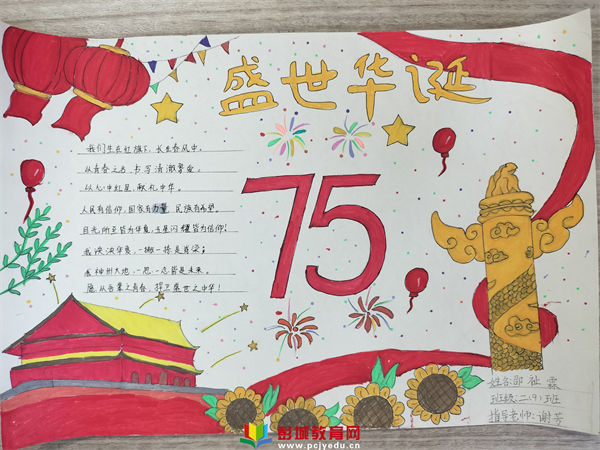 盛世华诞
75
我们生在红旗下，长在春风中。
以青春之名，书写清澈挚爱。
以心中红星，献礼中华。
人民有信仰，国家有力量，民族有希望。
目光所至皆为华夏，五星闪耀皆为信仰！
泱泱华夏，一撇一捺是脊梁；
神州大地，一思一念皆是未来。
愿以吾辈之青春，捍卫盛世之中华！
姓名:邵祉霖
班级:二(9)班
指导老师:谢芳
彭城教育网
www.pcjyedu.cn